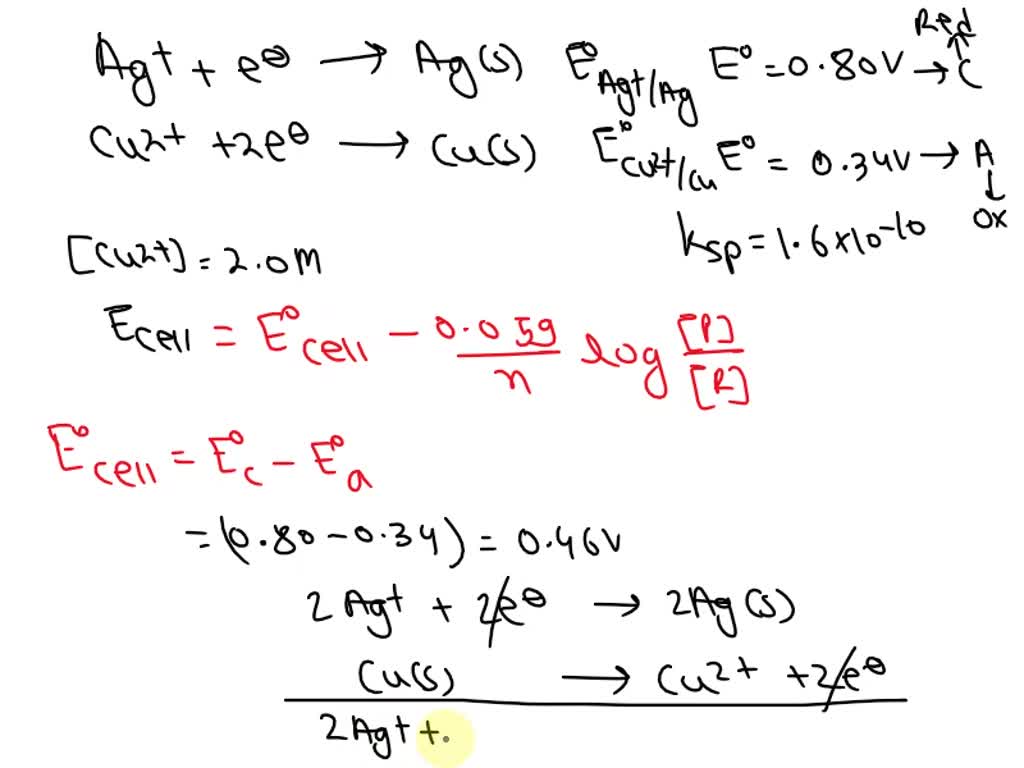 Red
Ag+ + e⊖ → Ag(s) E°Ag+/Ag E° = 0.80V → C
Cu2+ + 2e⊖ → Cu(s) E°Cu2+/Cu E° = 0.34V → A
Ox
[Cu2+] = 2.0M
Ksp = 1.6×10-10
Ecell = E°cell - 0.059/n log [P]/[R]
E°cell = E°c - E°a
= (0.80 - 0.34) = 0.46V
2Ag+ + 2e⊖ → 2Ag(s)
Cu(s) → Cu2+ + 2e⊖
2Ag+ +